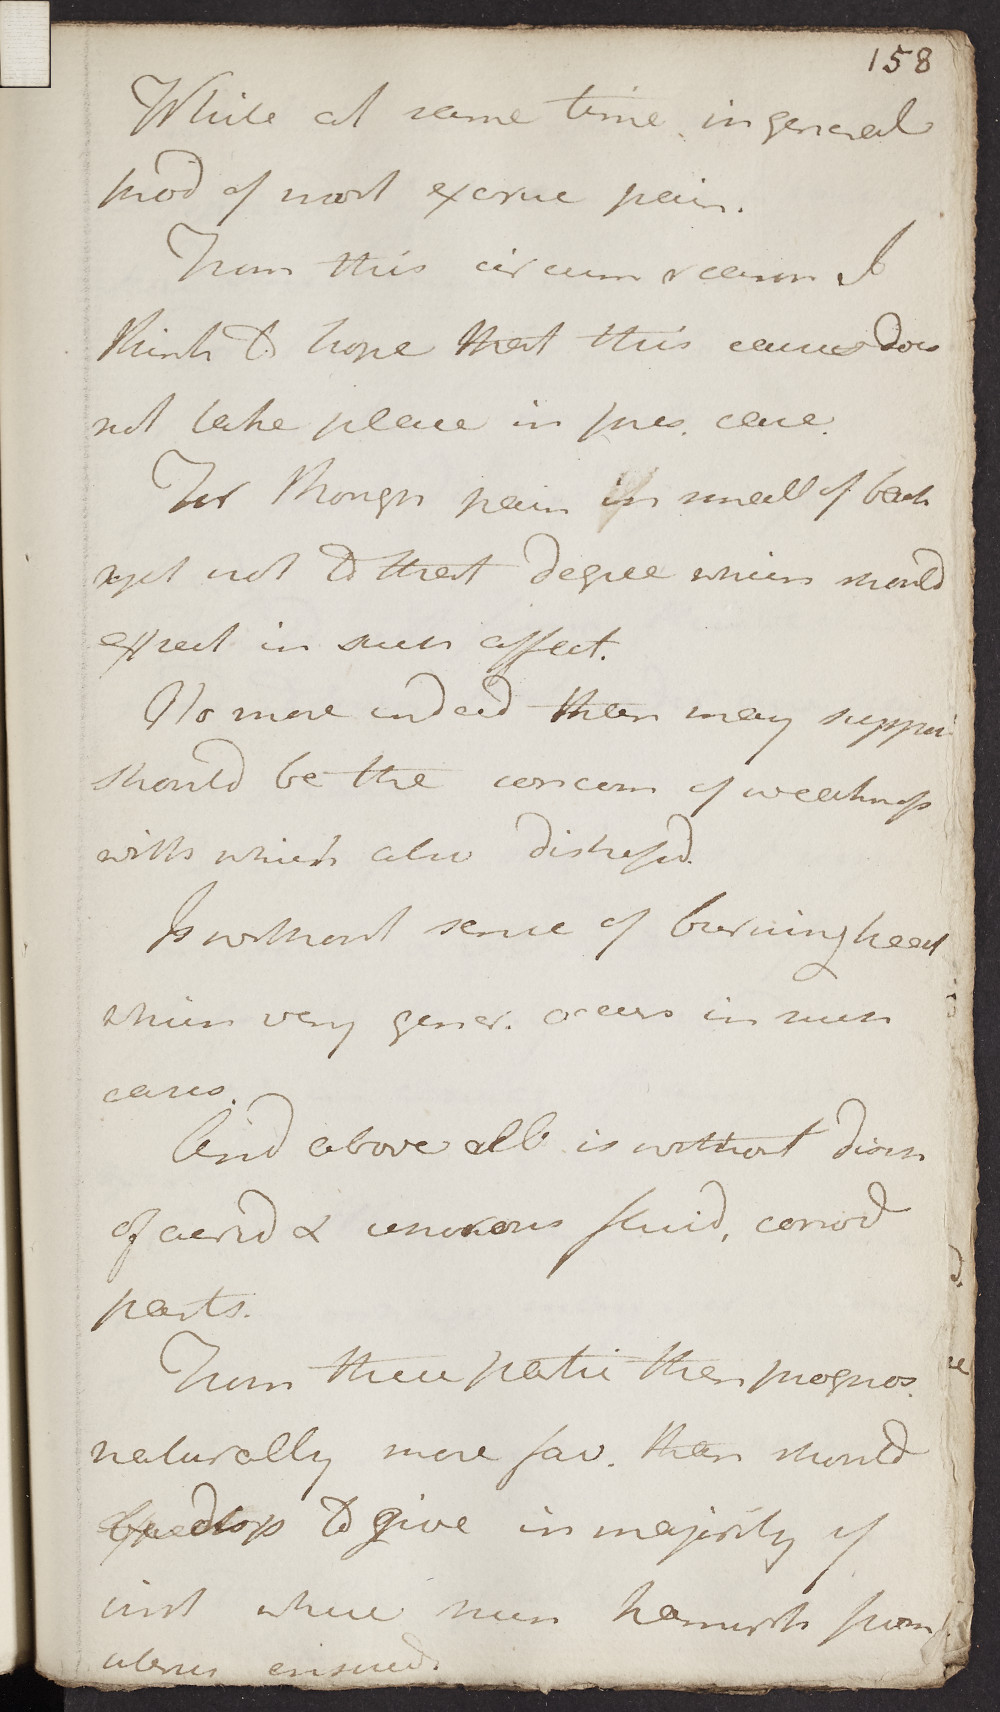 158
While at same time in general
prod of most excruc pain.
From this circum reason I
think to hope that this cause does
not take place in pres. case.
For though pain in small of back
yet not to that degree which should
expect in such affect.
No more indeed than may suppos
should be the concom of weakness
with which also distressd.
Is without sense of burning heat
which very gener. occurs in such
cases.
And above all is without disch
of acrid & fluid, corrod
parts.
From these partic then prognos.
naturally more fav. than should
to give in majority of
inst where such hemorrh from
uterus ensued.